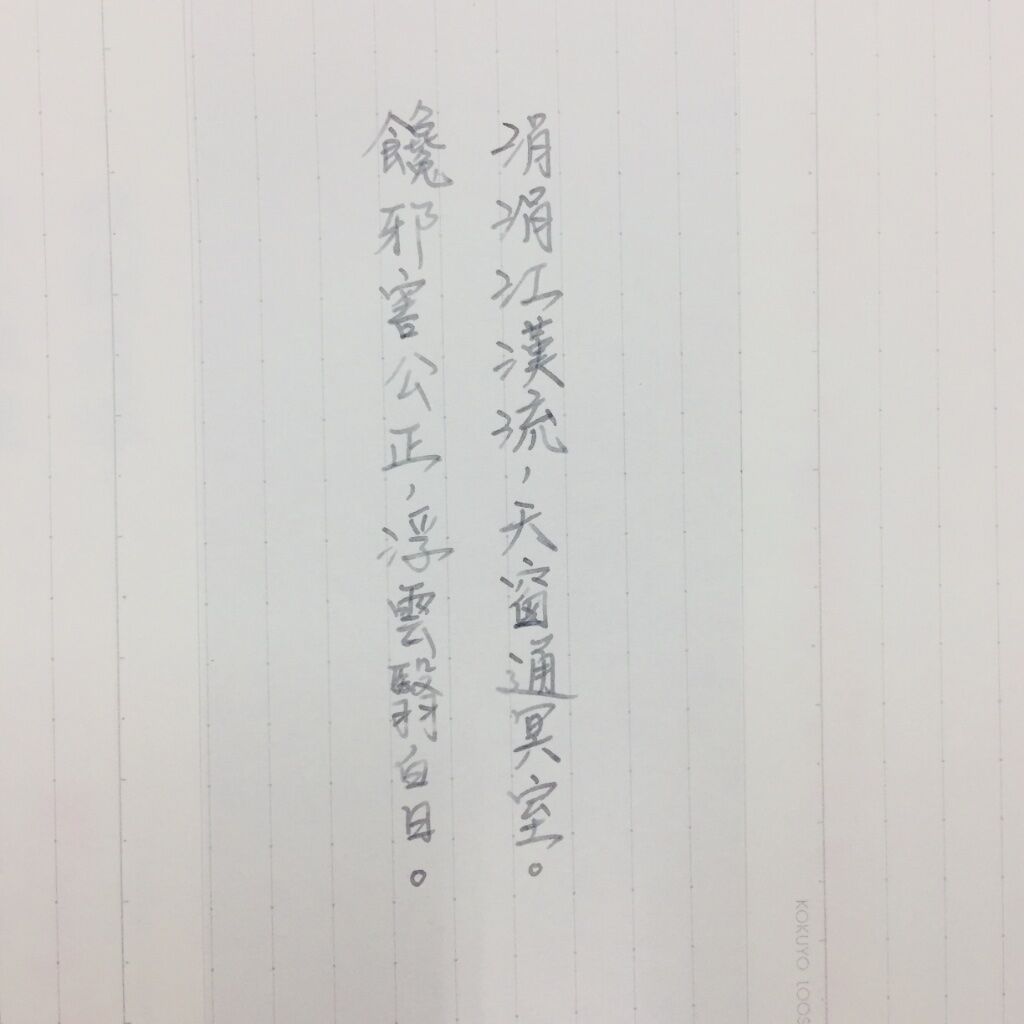 涓涓江漢流，天窗通冥室。
饞邪害公正，浮雲翳白日。
KOKUYO LOOS